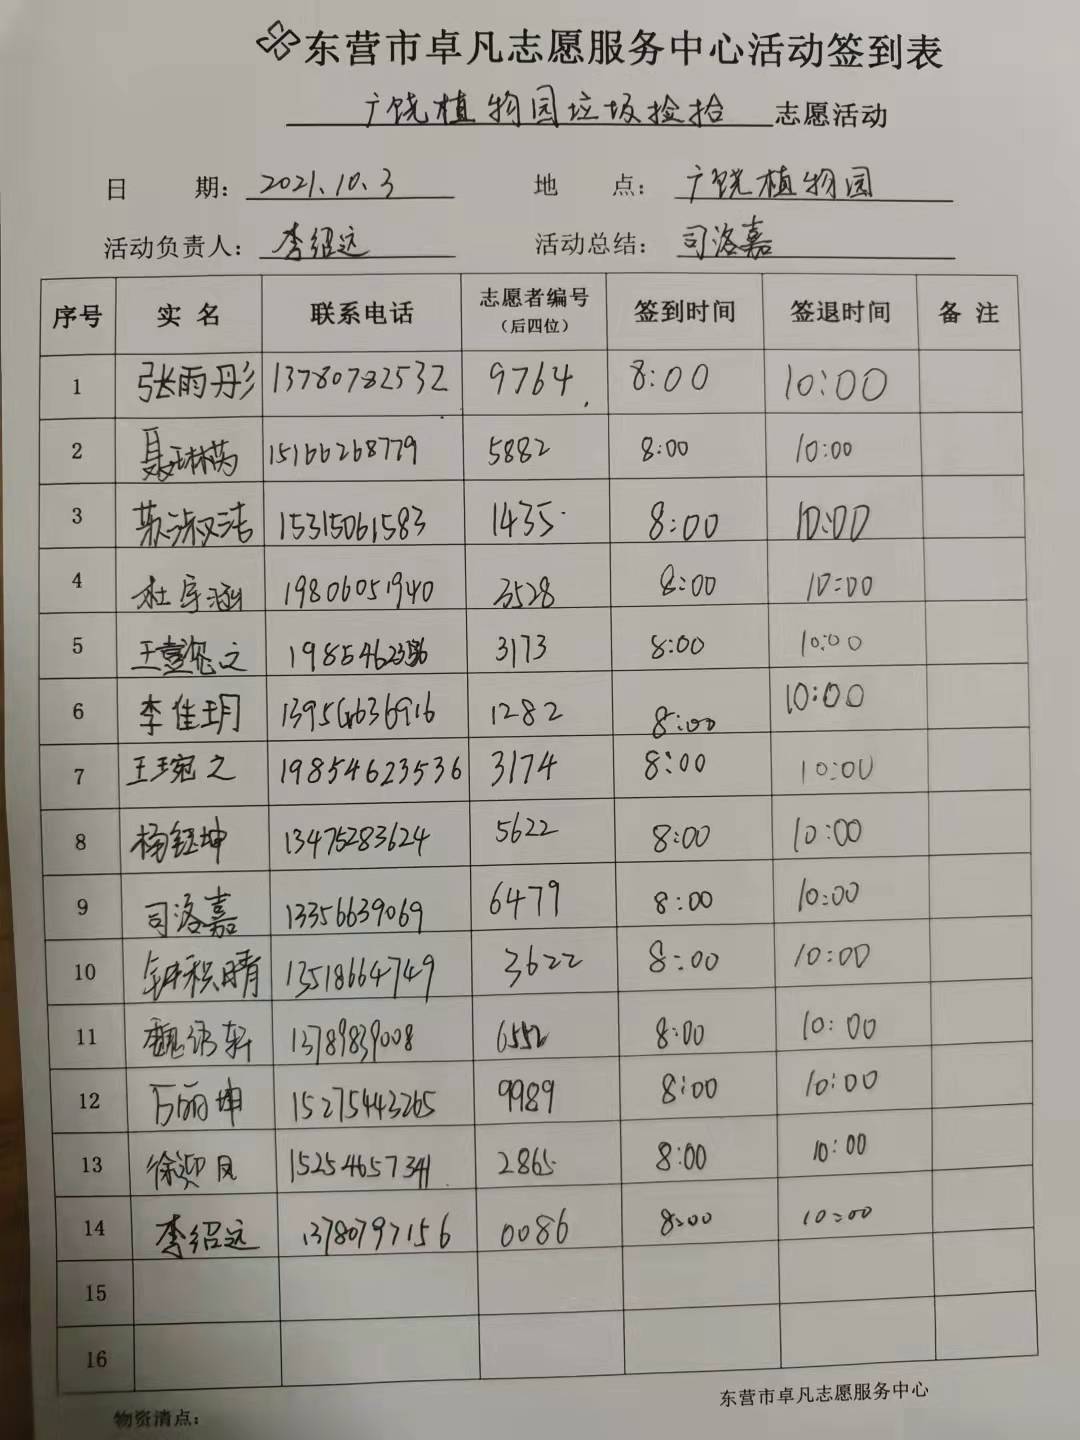 东营市卓凡志愿服务中心活动签到表
广饶植物园垃圾捡拾 志愿活动
日 期: 2021.10.3 地 点: 广饶植物园
活动负责人: 李绍远 活动总结: 司洛嘉
序号 实名 联系电话 志愿者编号(后四位) 签到时间 签退时间 备注
1 张雨彤 13780782532 9764 8:00 10:00
2 聂琳 15166268779 5882 8:00 10:00
3 淑洁 15315061583 1435 8:00 10:00
4 杜宇涵 19806051940 3528 8:00 10:00
5 王懿之 198546 3173 8:00 10:00
6 李佳玥 1395 636916 1282 8:00 10:00
7 王琬之 19854623536 3174 8:00 10:00
8 杨钰坤 13475283624 5622 8:00 10:00
9 司洛嘉 13356639069 6479 8:00 10:00
10 钟积晴 13518664749 3622 8:00 10:00
11 魏 轩 13789839008 6552 8:00 10:00
12 万丽坤 15275443265 9989 8:00 10:00
13 徐迎凤 15254657341 2865 8:00 10:00
14 李绍远 13780797156 0086 8:00 10:00
15
16
物资清点: 东营市卓凡志愿服务中心